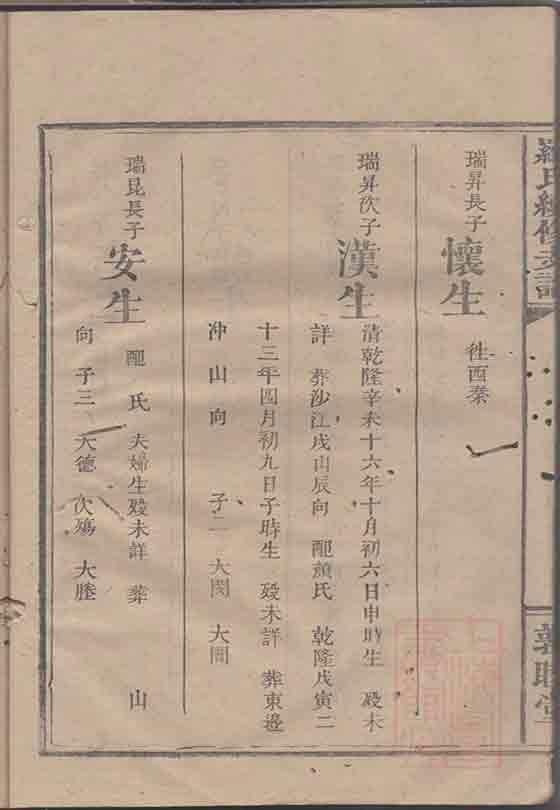 羅氏續修支譜
敦睦堂
瑞昇長子
懷生
往西秦
瑞昇次子
漢生
清乾隆辛未十六年十月初六日申時生 歿未
詳 葬沙江戌山辰向 配顏氏 乾隆戊寅二
十三年四月初九日子時生 歿未詳 葬東邉
冲山向 子二 大閔 大閭
瑞昆長子
安生
配 氏 夫婦生歿未詳 葬 山
向 子三 大德 次殤 大陞